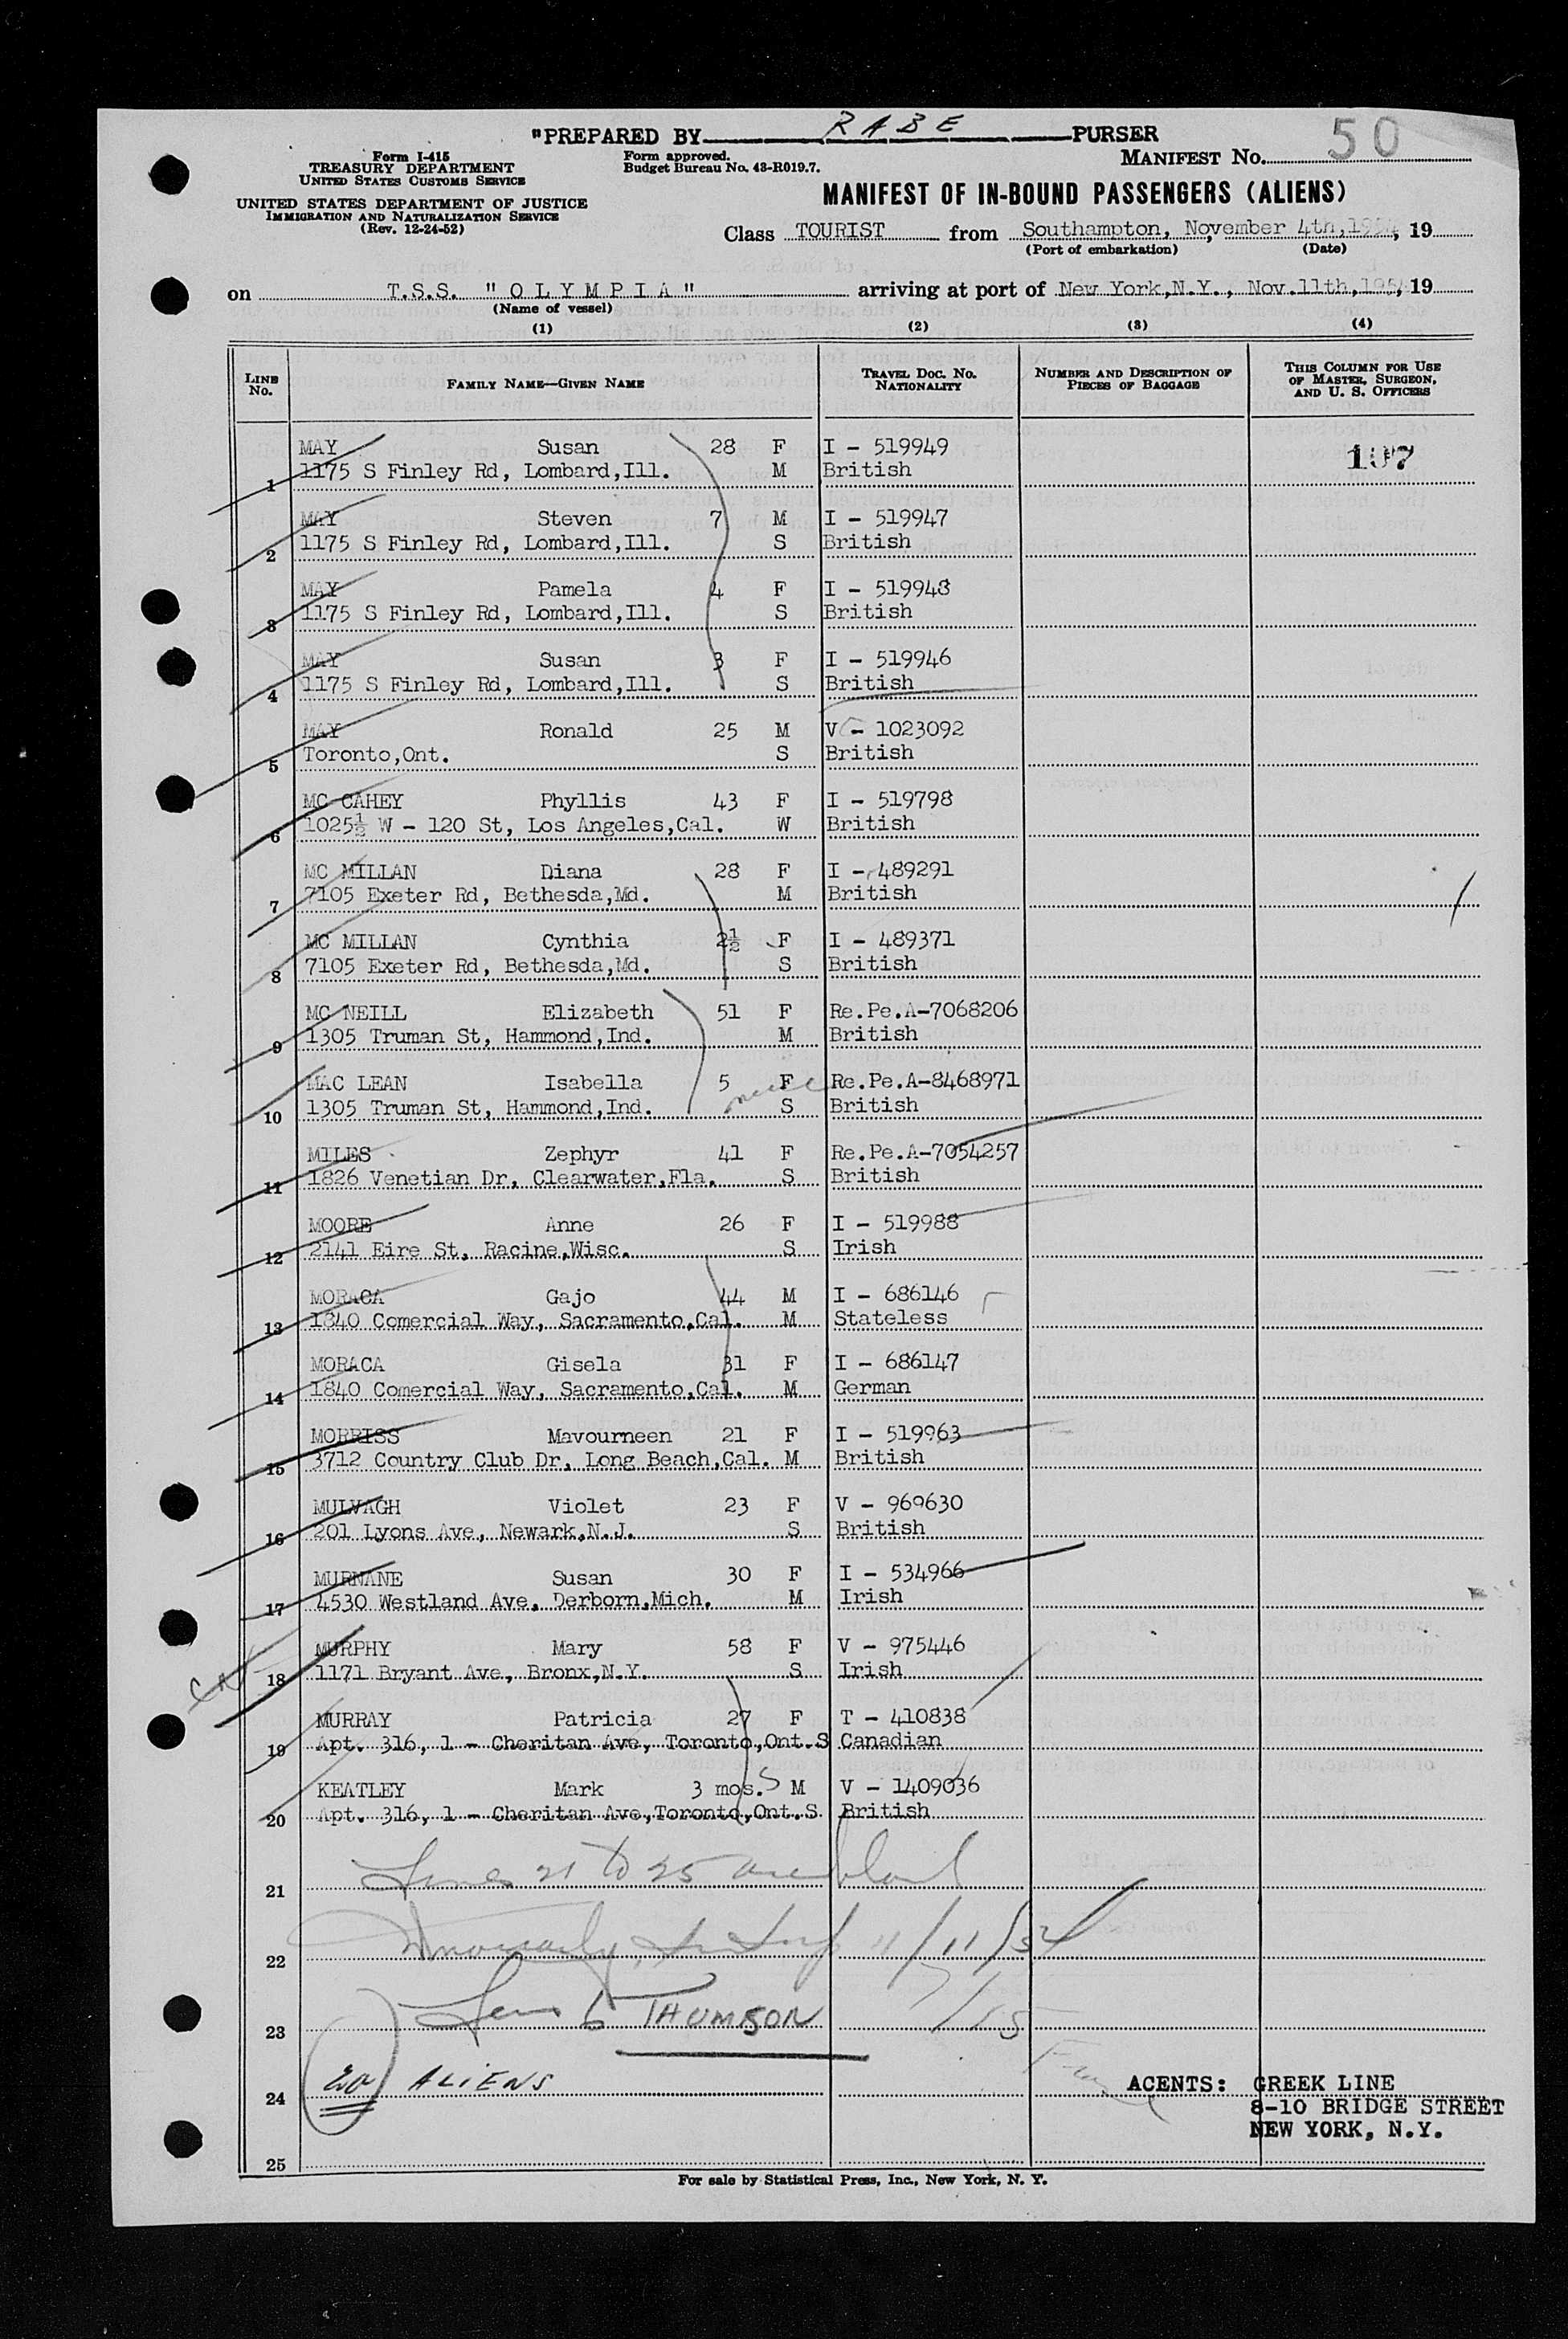 "PREPARED BY RABE PURSER
Form I-415
TREASURY DEPARTMENT
UNITED STATES CUSTOMS SERVICE
UNITED STATES DEPARTMENT OF JUSTICE
IMMIGRATION AND NATURALIZATION SERVICE
(Rev. 12-24-52)
Form approved.
Budget Bureau No. 43-R019.7.
MANIFEST No. 50
MANIFEST OF IN-BOUND PASSENGERS (ALIENS)
Class TOURIST from Southampton, November 4th,1954, 19
(Port of embarkation) (Date)
on T.S.S. "OLYMPIA" arriving at port of New York,N.Y., Nov.11th,1954, 19
(Name of vessel)
(1) (2) (3) (4)
LINE No. FAMILY NAME—GIVEN NAME TRAVEL DOC. No. NATIONALITY NUMBER AND DESCRIPTION OF PIECES OF BAGGAGE THIS COLUMN FOR USE OF MASTER, SURGEON, AND U. S. OFFICERS
MAY Susan 28 F I - 519949 107
1 1175 S Finley Rd, Lombard,Ill. M British
MAY Steven 7 M I - 519947
2 1175 S Finley Rd, Lombard,Ill. S British
MAY Pamela 4 F I - 519948
3 1175 S Finley Rd, Lombard,Ill. S British
MAY Susan 3 F I - 519946
4 1175 S Finley Rd, Lombard,Ill. S British
MAY Ronald 25 M V - 1023092
5 Toronto,Ont. S British
MC CAHEY Phyllis 43 F I - 519798
6 1025½ W - 120 St, Los Angeles,Cal. W British
MC MILLAN Diana 28 F I - 489291
7 7105 Exeter Rd, Bethesda,Md. M British
MC MILLAN Cynthia 2½ F I - 489371
8 7105 Exeter Rd, Bethesda,Md. S British
MC NEILL Elizabeth 51 F Re.Pe.A-7068206
9 1305 Truman St, Hammond,Ind. M British
MAC LEAN Isabella 5 F Re.Pe.A-8468971
niece
10 1305 Truman St, Hammond,Ind. S British
MILES Zephyr 41 F Re.Pe.A-7054257
11 1826 Venetian Dr, Clearwater,Fla. S British
MOORE Anne 26 F I - 519988
12 2141 Eire St, Racine,Wisc. S Irish
MORACA Gajo 44 M I - 686146
13 1840 Comercial Way, Sacramento,Cal. M Stateless
MORACA Gisela 31 F I - 686147
14 1840 Comercial Way, Sacramento,Cal. M German
MORRISS Mavourneen 21 F I - 519963
15 3712 Country Club Dr, Long Beach,Cal. M British
MULVAGH Violet 23 F V - 969630
16 201 Lyons Ave, Newark,N.J. S British
MURNANE Susan 30 F I - 534966
17 4530 Westland Ave, Derborn,Mich. M Irish
MURPHY Mary 58 F V - 975446
18 1171 Bryant Ave, Bronx,N.Y. S Irish
MURRAY Patricia 27 F T - 410838
19 Apt. 316, 1 - Cheritan Ave, Toronto,Ont. S Canadian
KEATLEY Mark 3 mos. S M V - 1409036
20 Apt. 316, 1 - Cheritan Ave,Toronto,Ont. S British
21 Lines 21 to 25 are blank
22 11/11/54
23 THOMSON
24 20 ALIENS
AGENTS: GREEK LINE
8-10 BRIDGE STREET
NEW YORK, N.Y.
25
For sale by Statistical Press, Inc., New York, N. Y.